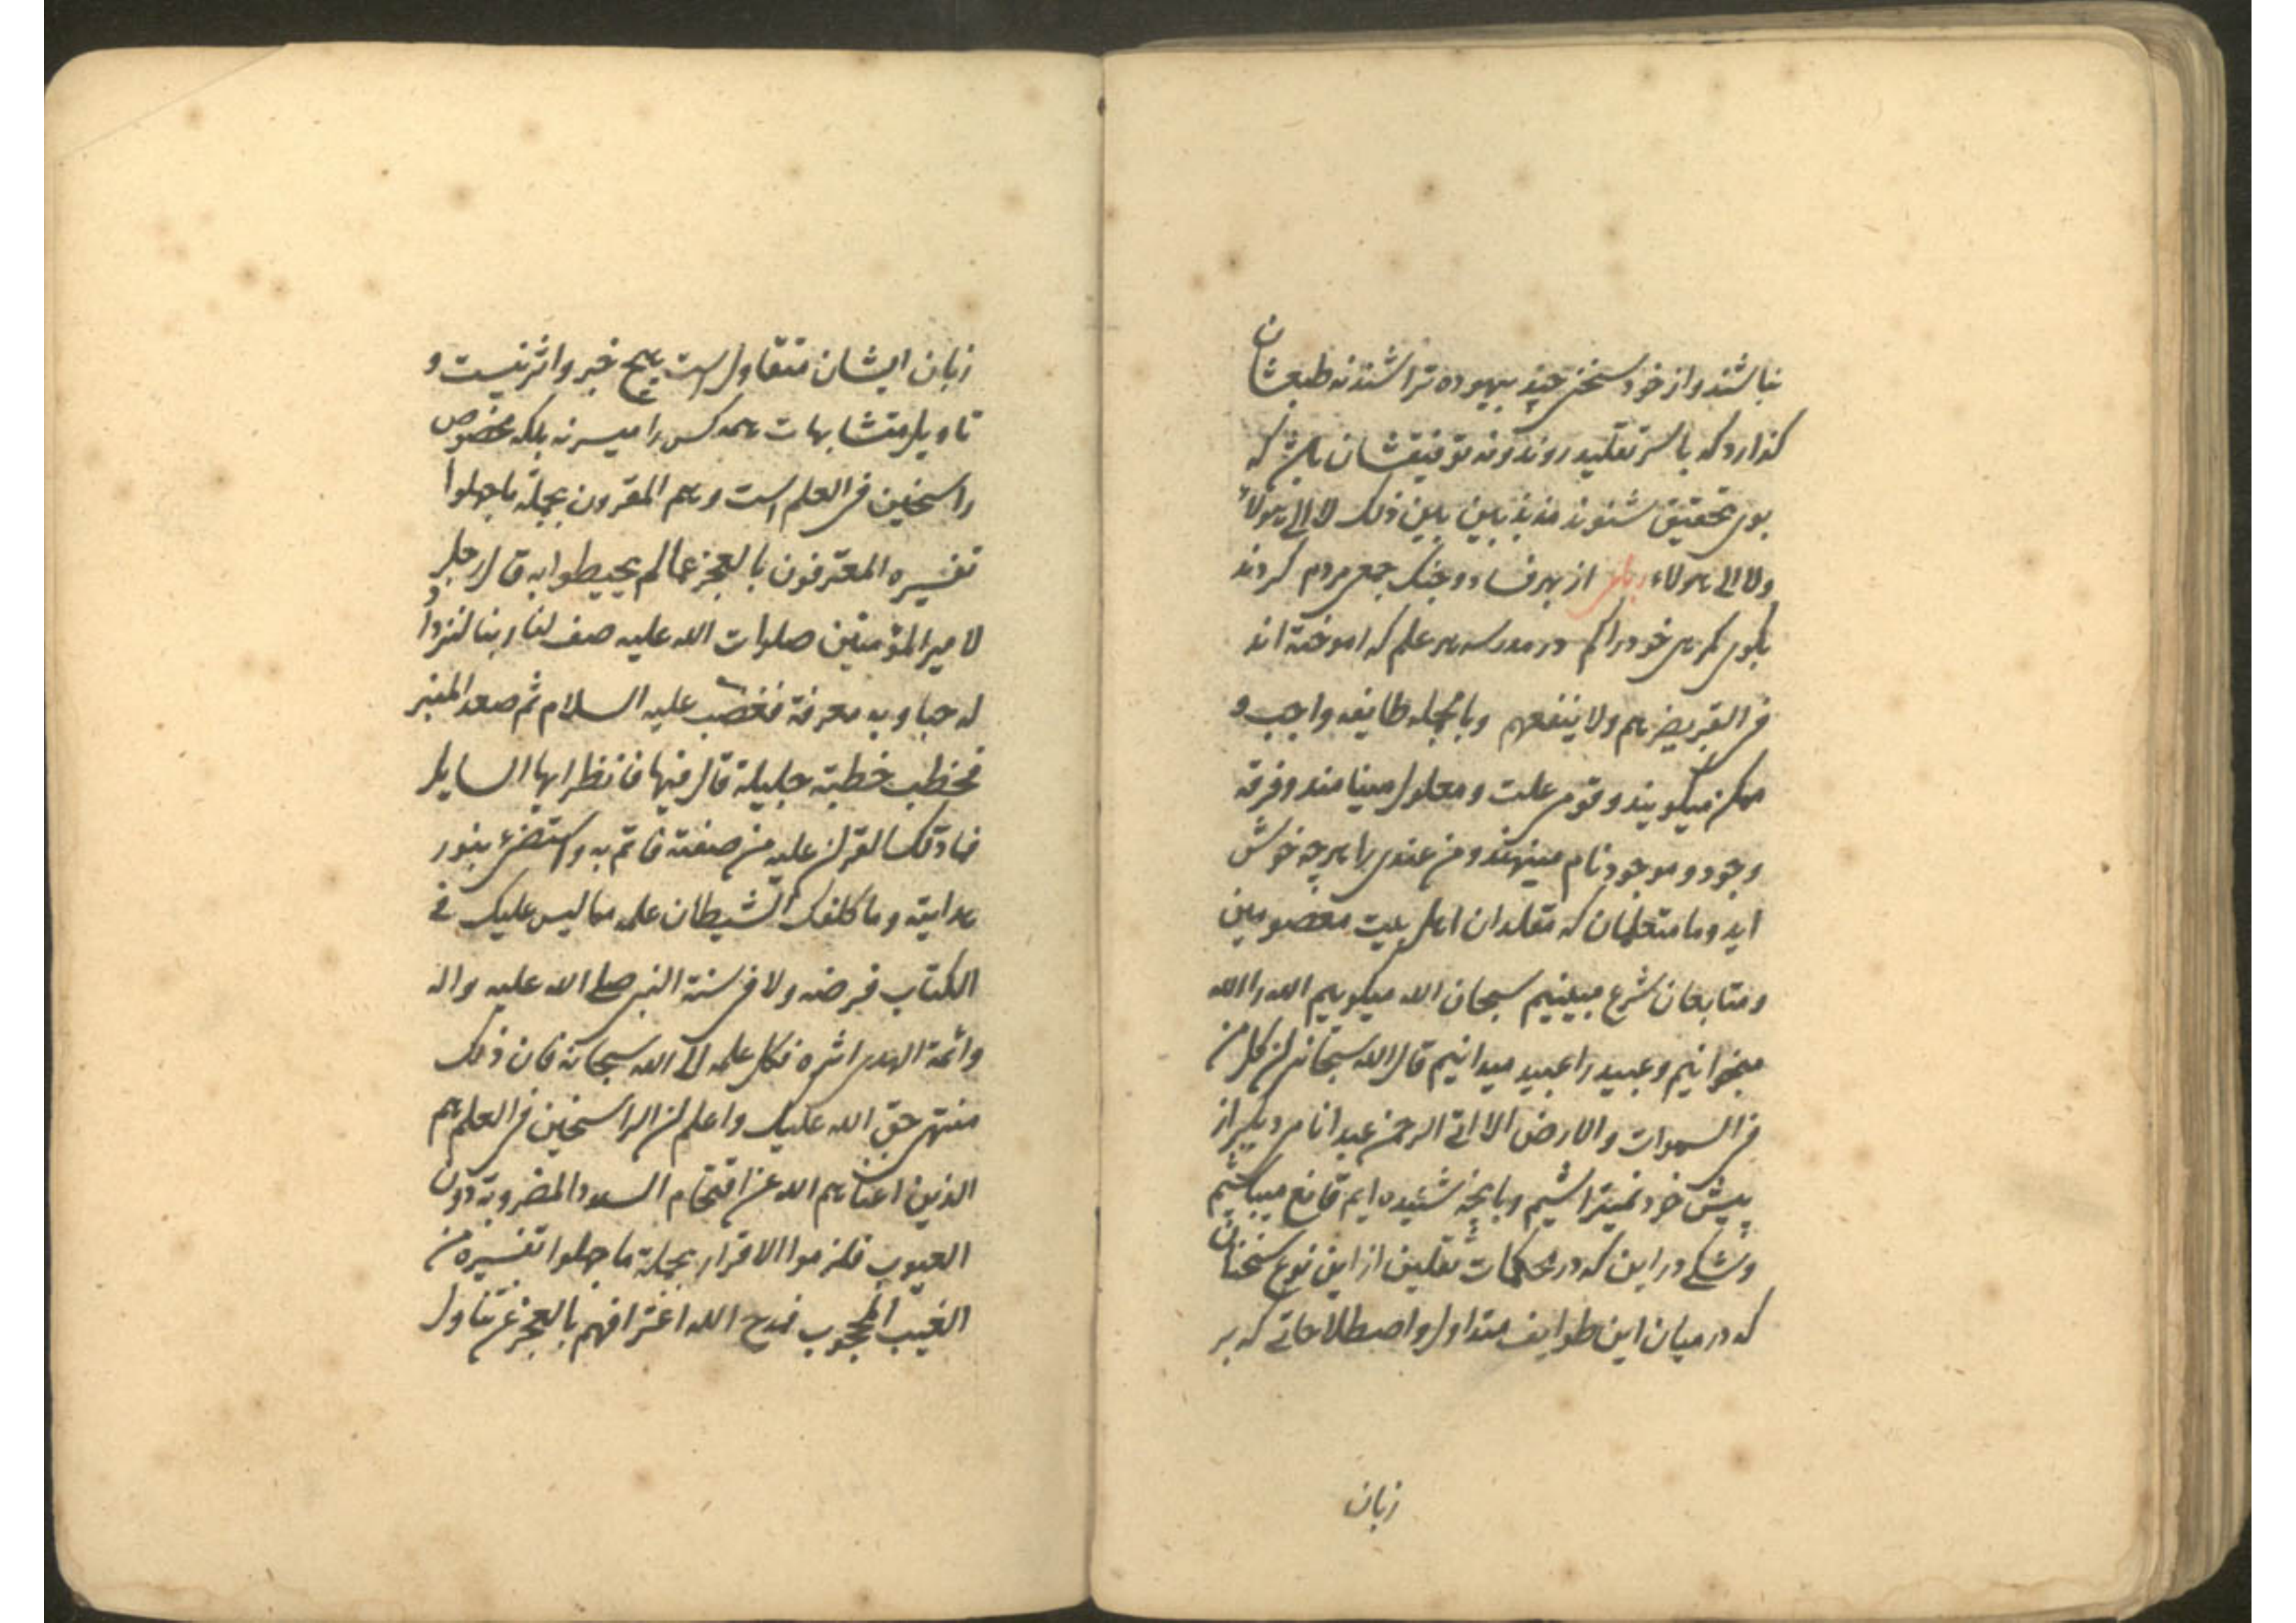 نباشند و از خود سخنی چند بیهوده تراشند نه طبعشان
کذارد که با سر تقلید روند و نه توفیقشان باشد که
بوی تحقیق شنوند مذبذبین بین ذلک لا الی هولاء
ولا الی هولاء رباعی از بهر فساد و جنک جمعی مردم کردند
بکوی کمرهی خود را کم در مدرسه هر علم که اموخته اند
فی القبر یضرهم ولا ینفعهم وبالجمله طایفه واجب و
ممکن میکویند و قومی علت و معلول مینامند و فرقه
وجود و موجود نام مینهند و من عندی را هر چه خوش
اید و ما متعلمان که مقلدان اهل بیت معصومین
و متابعان شرع مبینیم سبحان الله میکوییم الله را الله
میخوانیم و عبید را عبید میدانیم قال الله سبحانه ان کل من
فی السموات والارض الا اتی الرحمن عبدا نامی دیکر از
پیش خود نمیتراشیم و بانچه شنیده ایم قانع میباشیم
و شکی در این که در محکمات ثقلین از این نوع سخنان
که در میان این طوایف متداول و اصطلاحاتی که بر
زبان
زبان ایشان متقاول است هیچ خبر و اثر نیست و
تاویل متشابهات همه کس را میسر نه بلکه مخصوص
راسخین فی العلم است وهم المقرون بجملة ما جهلوا
تفسیره المعترفون بالعجز عما لم یحیطوا به قال رجل
لامیر المؤمنین صلوات الله علیه صف لنا ربنا لنزداد
له حبا وبه معرفة فغضب علیه السلام ثم صعد المنبر
فخطب خطبة جلیلة قال فیها فانظر ایها السایل
فما دلک القران علیه من صفته فائتم به واستضئ بنور
هدایته وما کلفک الشیطان علمه مما لیس علیک فی
الکتاب فرضه ولا فی سنة النبی صلی الله علیه واله
وائمة الهدی اثره فکل علمه الی الله سبحانه فان ذلک
منتهی حق الله علیک واعلم ان الراسخین فی العلم هم
الذین اغناهم الله عن اقتحام السدد المضروبة دون
الغیوب فلزموا الاقرار بجملة ما جهلوا تفسیره من
الغیب المحجوب فمدح الله اعترافهم بالعجز عن تناول